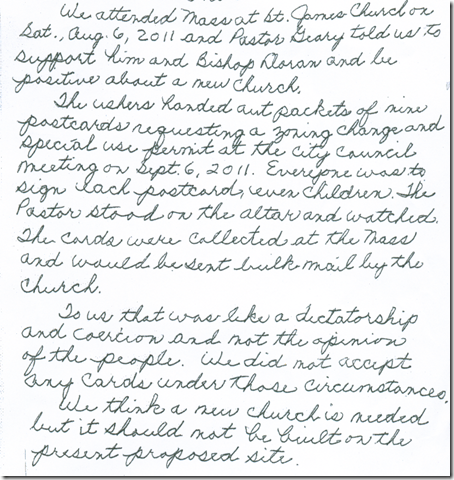 We attended Mass at St. James Church on
Sat., Aug. 6, 2011 and Pastor Geary told us to
support him and Bishop Doran and be
positive about a new Church.
The ushers handed out packets of nine
postcards requesting a zoning change and
special use permit at the city council
meeting on Sept. 6, 2011. Everyone was to
sign each postcard, even children. The
Pastor stood on the altar and watched.
The cards were collected at the Mass
and would be sent bulk mail by the
Church.
To us that was like a dictatorship
and coercion and not the opinion
of the people. We did not accept
any cards under those circumstances.
We think a new church is needed
but it should not be built on the
present proposed site.